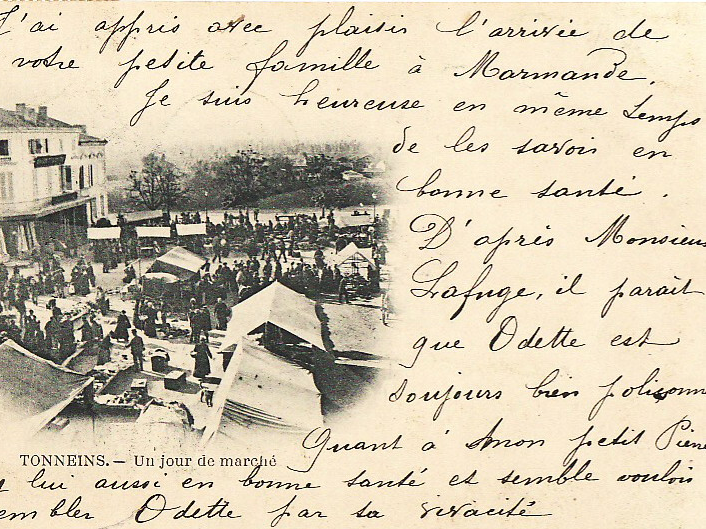 J'ai appris avec plaisir l'arrivée de
votre petite famille à Marmande.
Je suis heureuse en même temps
de les savoir en
bonne santé.
D'après Monsieur
Lafuge, il paraît
que Odette est
toujours bien polisonn
Quant à mon petit Pierre
TONNEINS. — Un jour de marché
lui aussi en bonne santé et semble vouloir
sembler Odette par sa vivacité